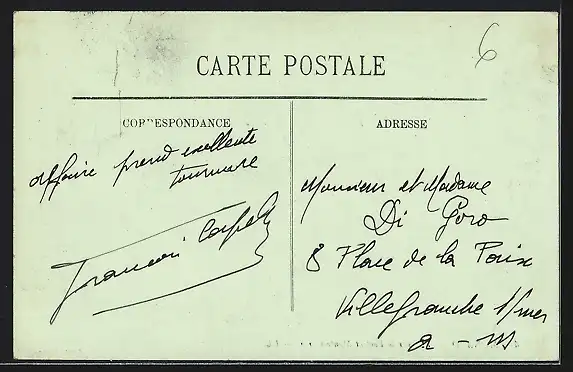 6
CARTE POSTALE
CORRESPONDANCE
ADRESSE
Affaire prend excellente
tournure
Monsieur et Madame
Di Goro
8 Place de la Paix
Villefranche s/mer
a-m